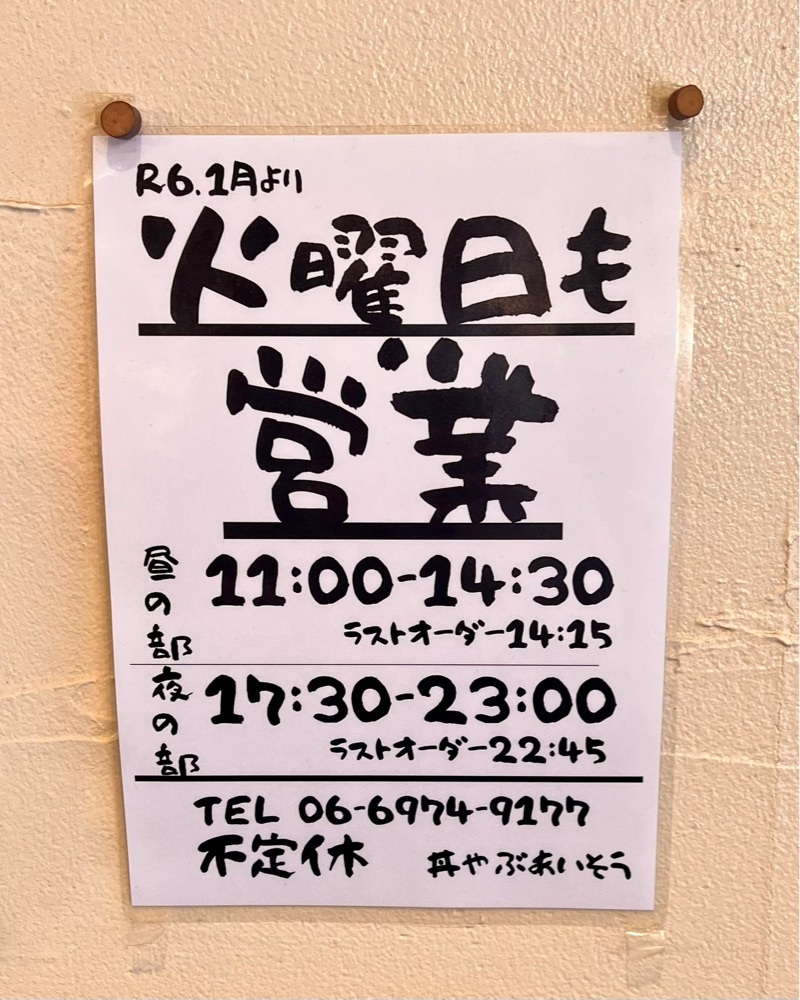 R6.1月より
火曜日も
営業
昼の部
11:00-14:30
ラストオーダー14:15
夜の部
17:30-23:00
ラストオーダー22:45
TEL 06-6974-9177
不定休
丼やぶあいそう